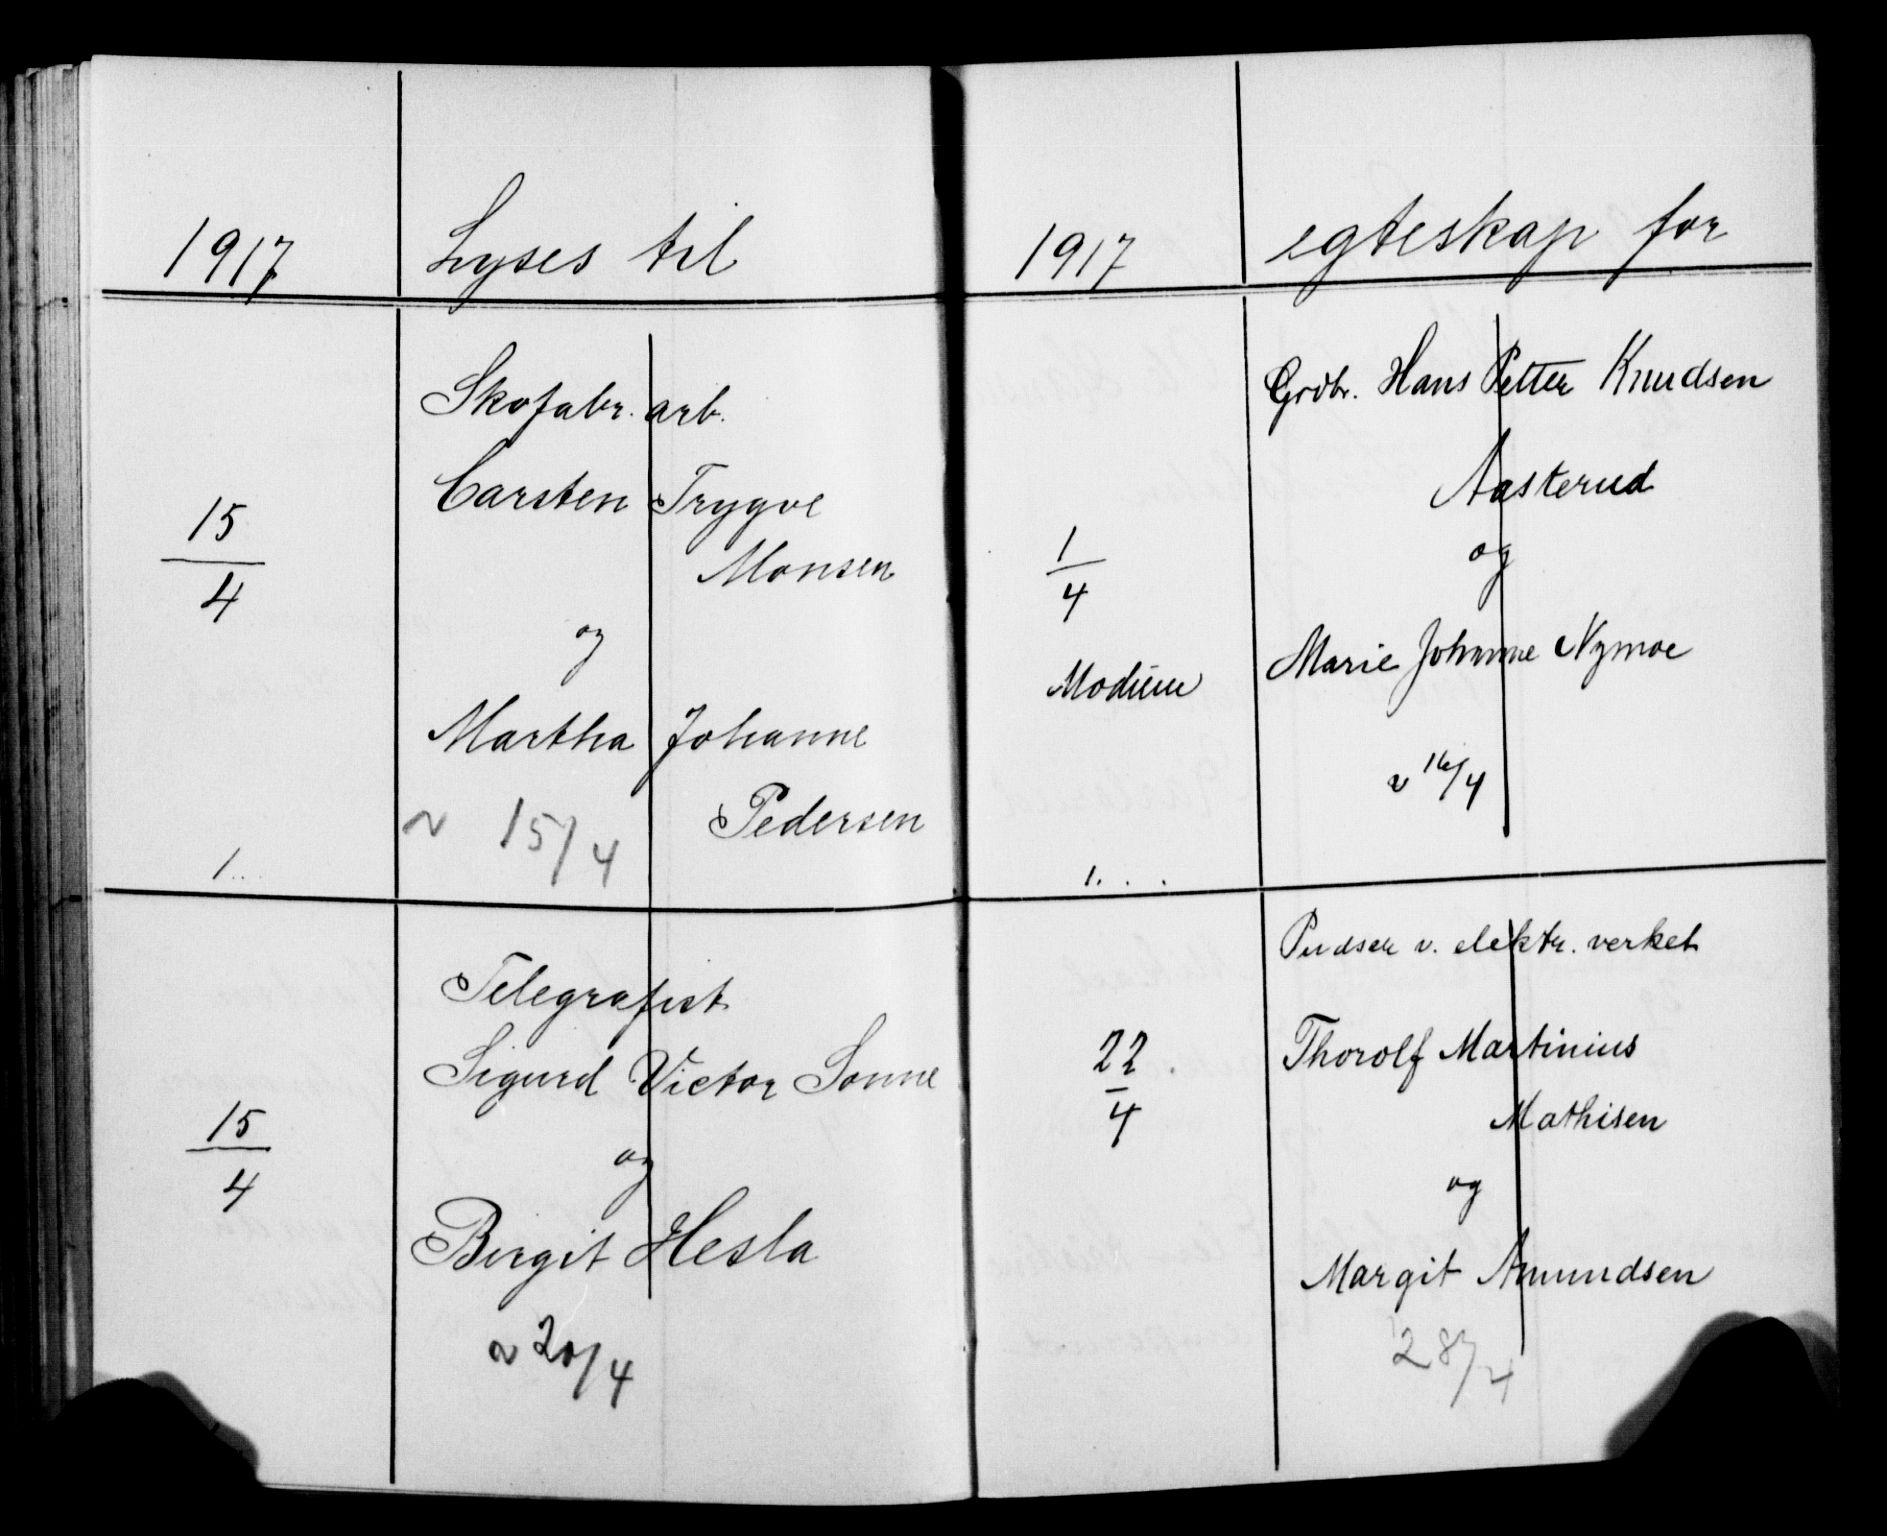 1917
Lyses til
Skofabr. arb.
Carsten Trygve
Monsen
15/4
og
Martha Johanne
Pedersen
v 15/4
1...
Telegrafist
Sigurd Victor Sonne
15/4
og
Birgit Hesla
v 20/4
1917
egteskap for
Grdbr. Hans Petter Knudsen
Aasterud
1/4
og
Modum
Marie Johanne Nymoe
v 16/4
1...
v. elektr. verket
22/4
Thorolf Martinius
Mathisen
og
Margit Amundsen
28/4